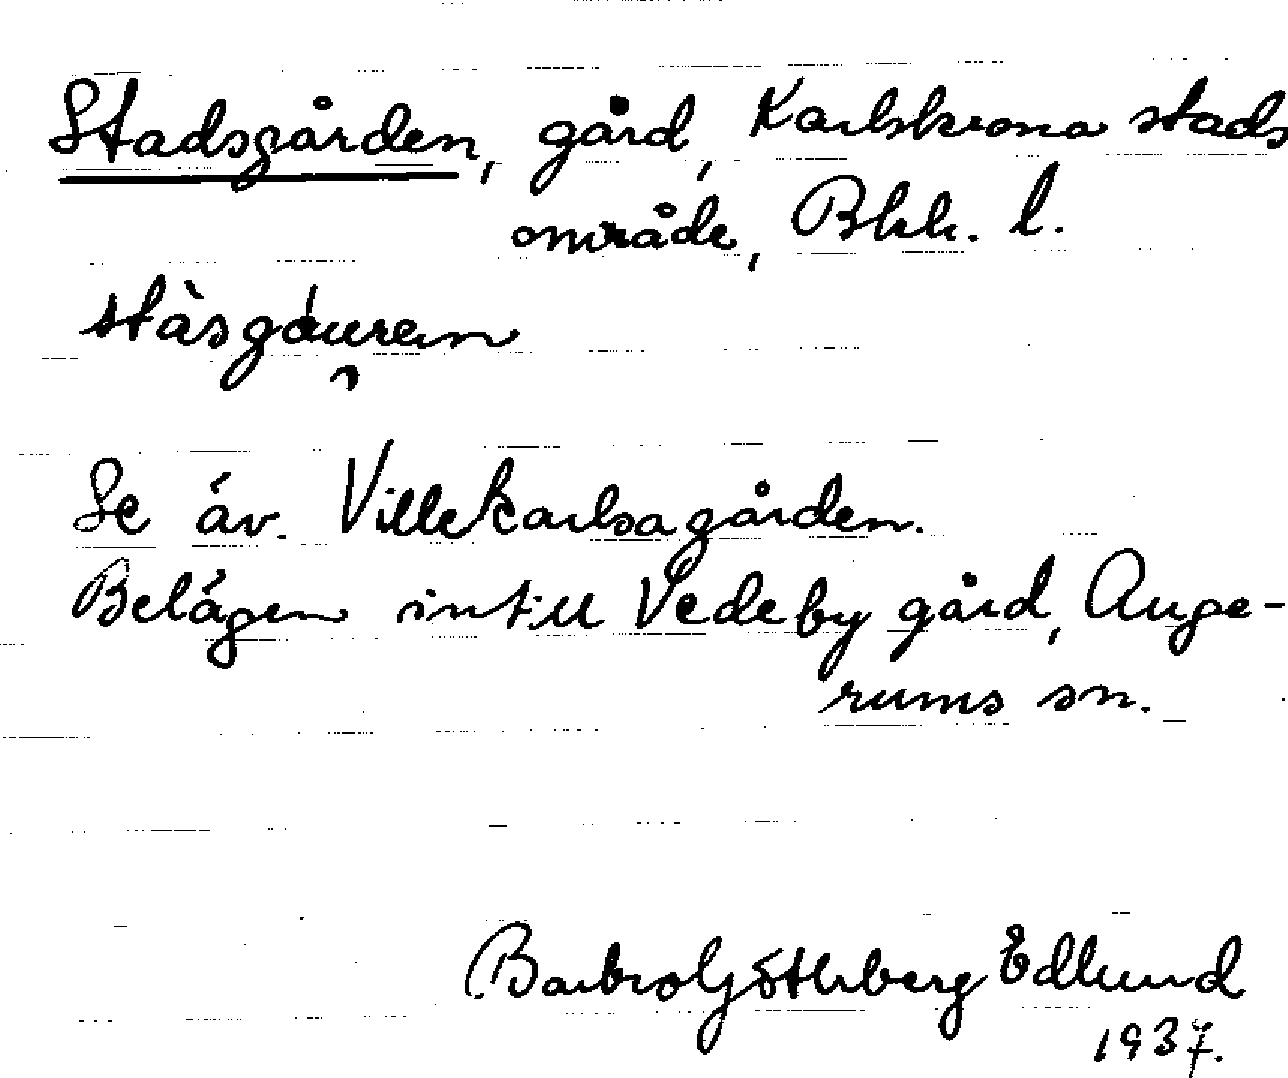 Stadsgården, gård, Karlskrona stads
område, Blek. l.
stàsgáu̯ren
Se äv. Villekarlsagården.
Belägen intill Vedeby gård, Auge-
rums sn.
Barbro Götherberg Edlund
1937.